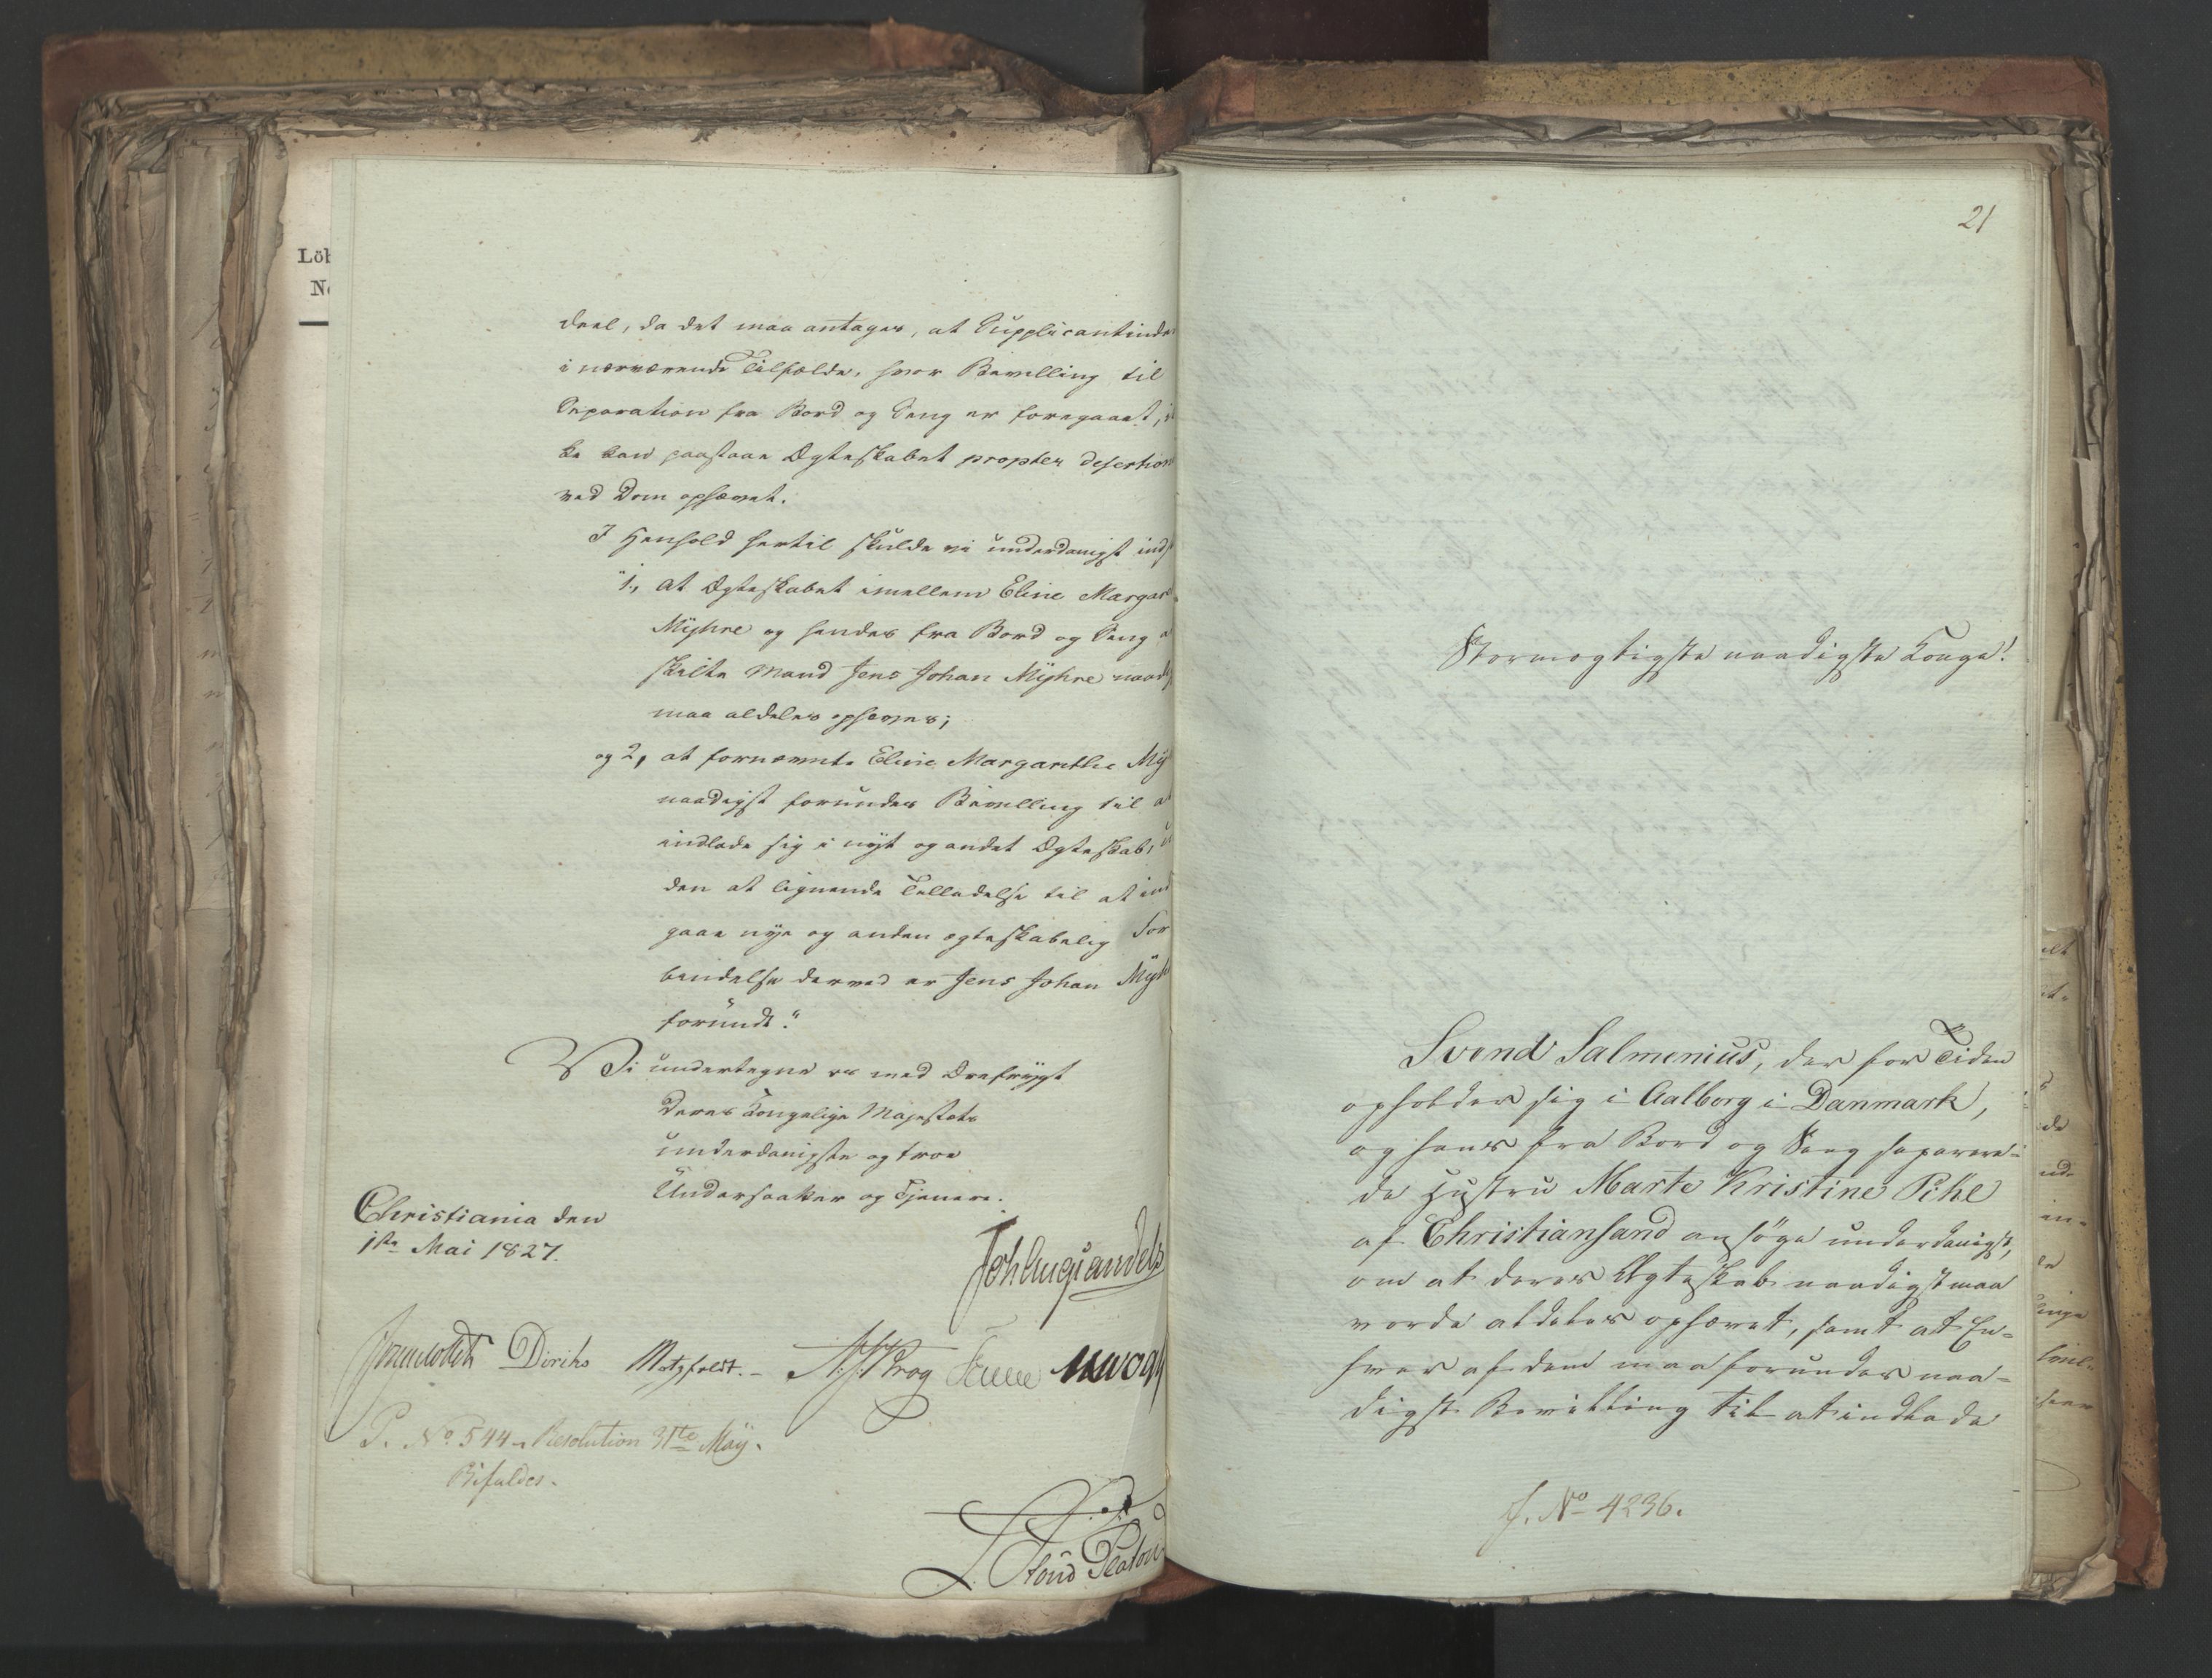 Löb
No
deel, da det maa antages, at Supplicantinden
i nærværende Tilfælde, hvor Bevilling til
Separation fra Bord og Seng er foregaaet, ik
ke kan paastaae Ægteskabet propter desertion
ved Dom ophævet.
I Henhold hertil skulde vi underdanigst ind
"1, at Ægteskabet imellem Eline Margar
Myhre og hendes fra Bord og Seng a
skilte Mand Jens Johan Myhre naad
maa aldeles ophæves;
og 2, at fornævnte Eline Margarethe My
naadigst forundes Bevilling til at
indlade sig i nyt og andet Ægteskab, u
den at lignende Tilladelse til at ind
gaae nye og anden ægteskabelig For
bindelse derved er Jens Johan Myh
forundt."
Vi undertegne os med Ærefrygt
Deres Kongelige Majestæts
underdanigste og troe
Undersaatter og Tjenere.
Christiania den
1ste Mai 1827.
Joh Aug Sandels
Diriks Motzfeldt. A. J. Krog
P. No 544. Resolution 31te May.
Bifaldes.
21
Stormægtigste naadigste Konge!
Svend Salmenius, der for Tiden
opholder sig i Aalborg i Danmark,
og hans fra Bord og Seng separere-
de Hustru Marte Kristine Pihl
af Christiansand ansøge underdanigst,
om at deres Ægteskab naadigst maa
vorde aldeles ophævet, samt at En-
hver af dem maa forundes naa-
digst Bevilling til at indlade
J. No 4236.